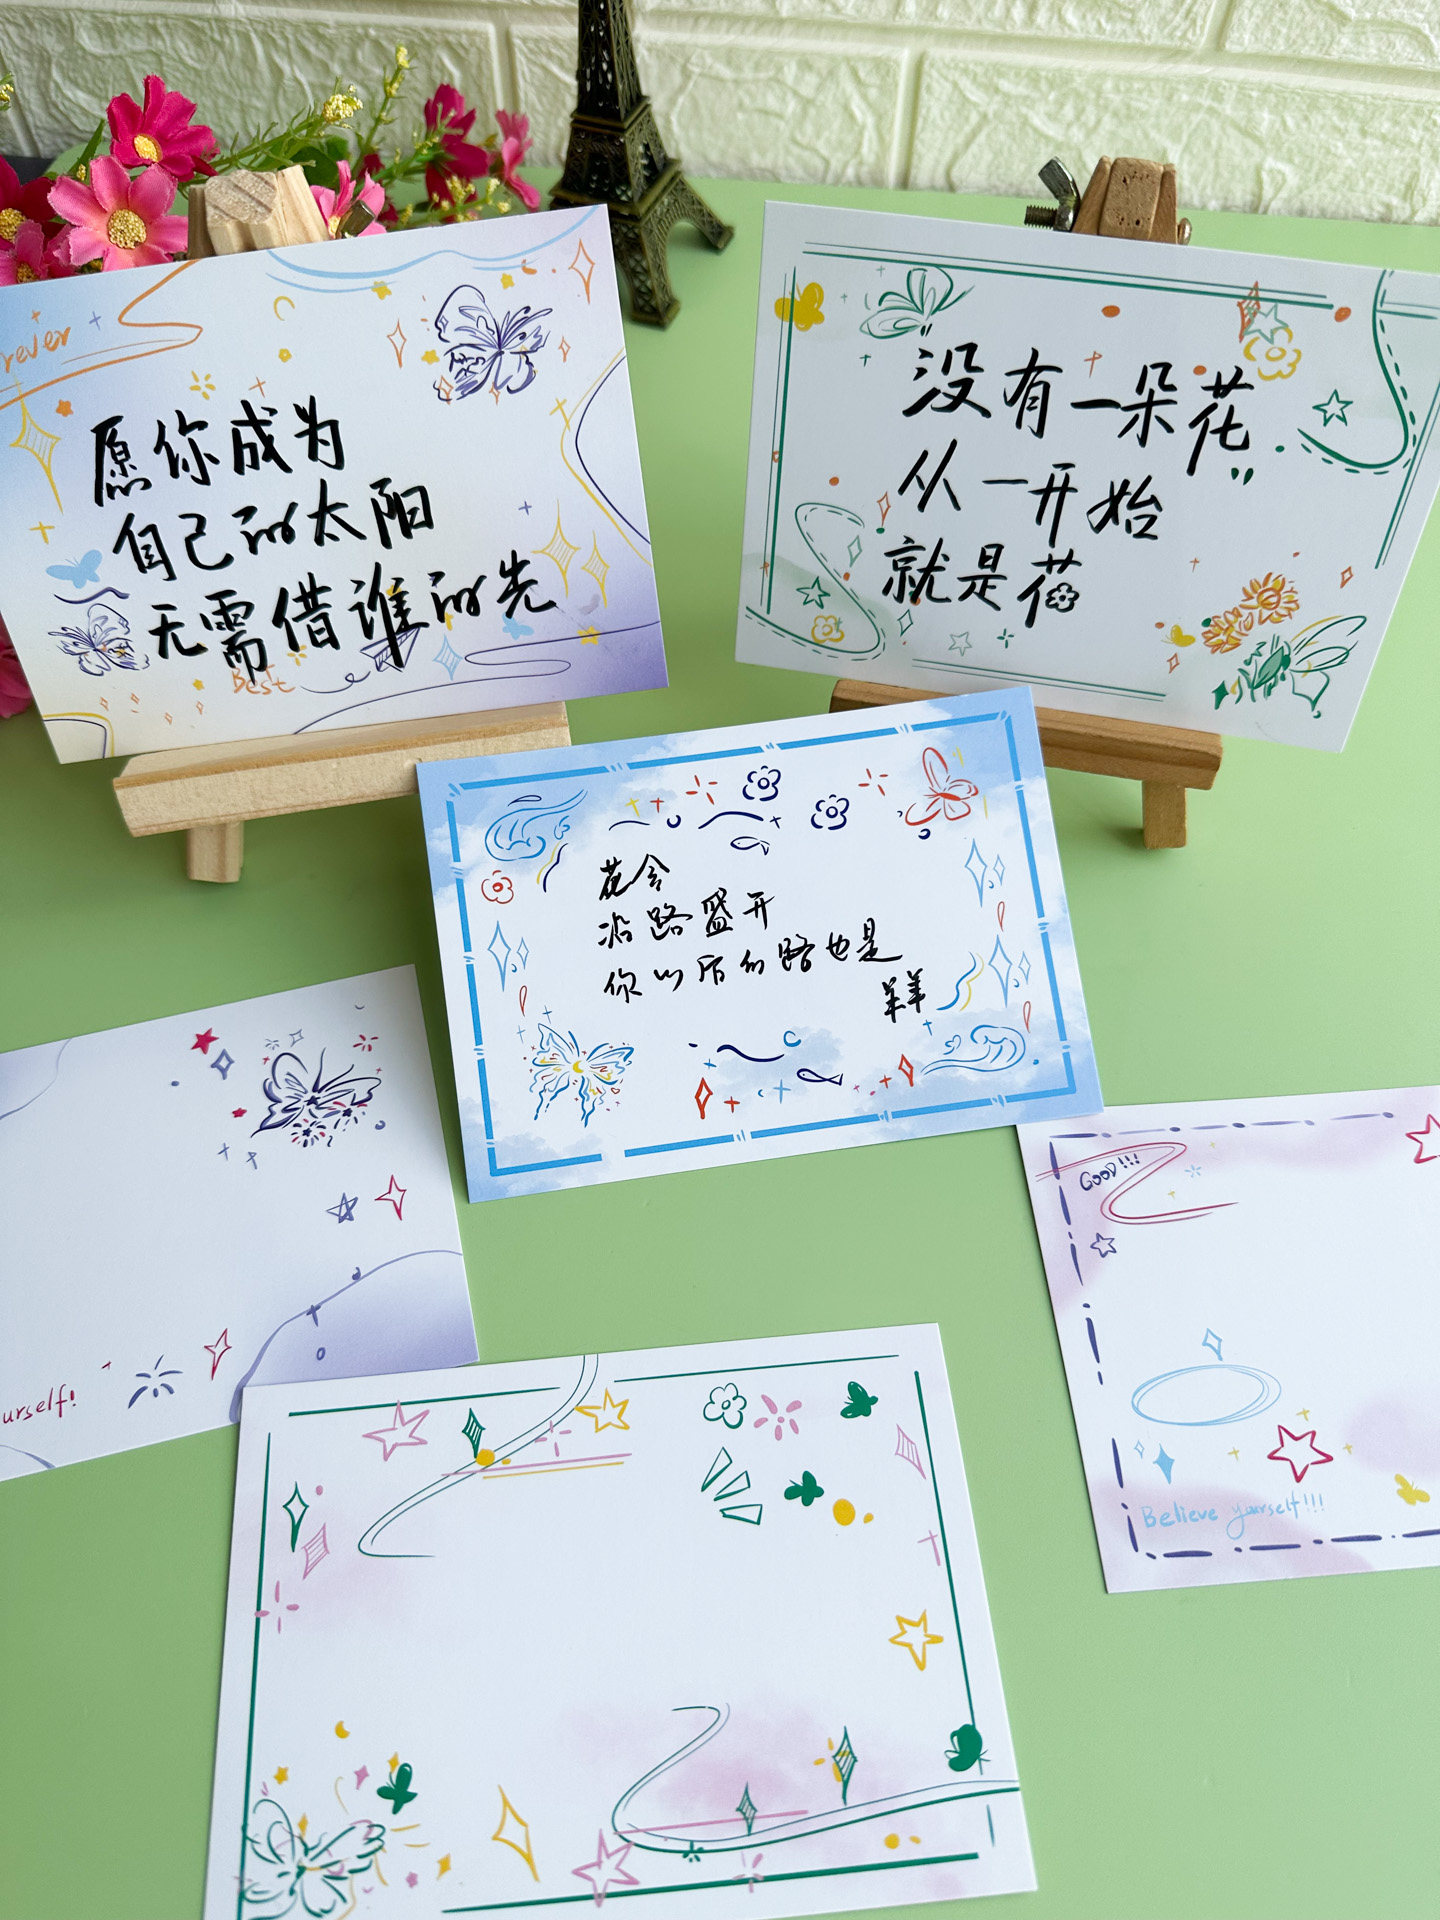 rever
愿你成为
自己的太阳
无需借谁的光
Best
没有一朵花
从一开始
就是花
花会
沿路盛开
你以后的路也是
羊羊
urself!
GOOD!!!
Believe yourself!!!